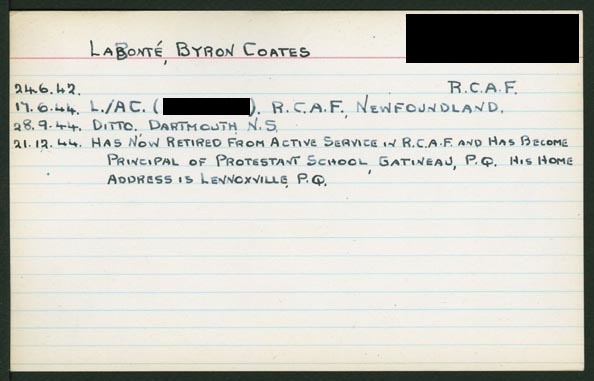 LaBonté, Byron Coates
24.6.42. R.C.A.F.
17.6.44. L./AC. ( ). R.C.A.F., Newfoundland.
28.9.44. Ditto, Dartmouth, N.S.
21.12.44. Has now retired from active service in R.C.A.F. and has become
Principal of Protestant School, Gatineau, P.Q. His home
address is Lennoxville, P.Q.